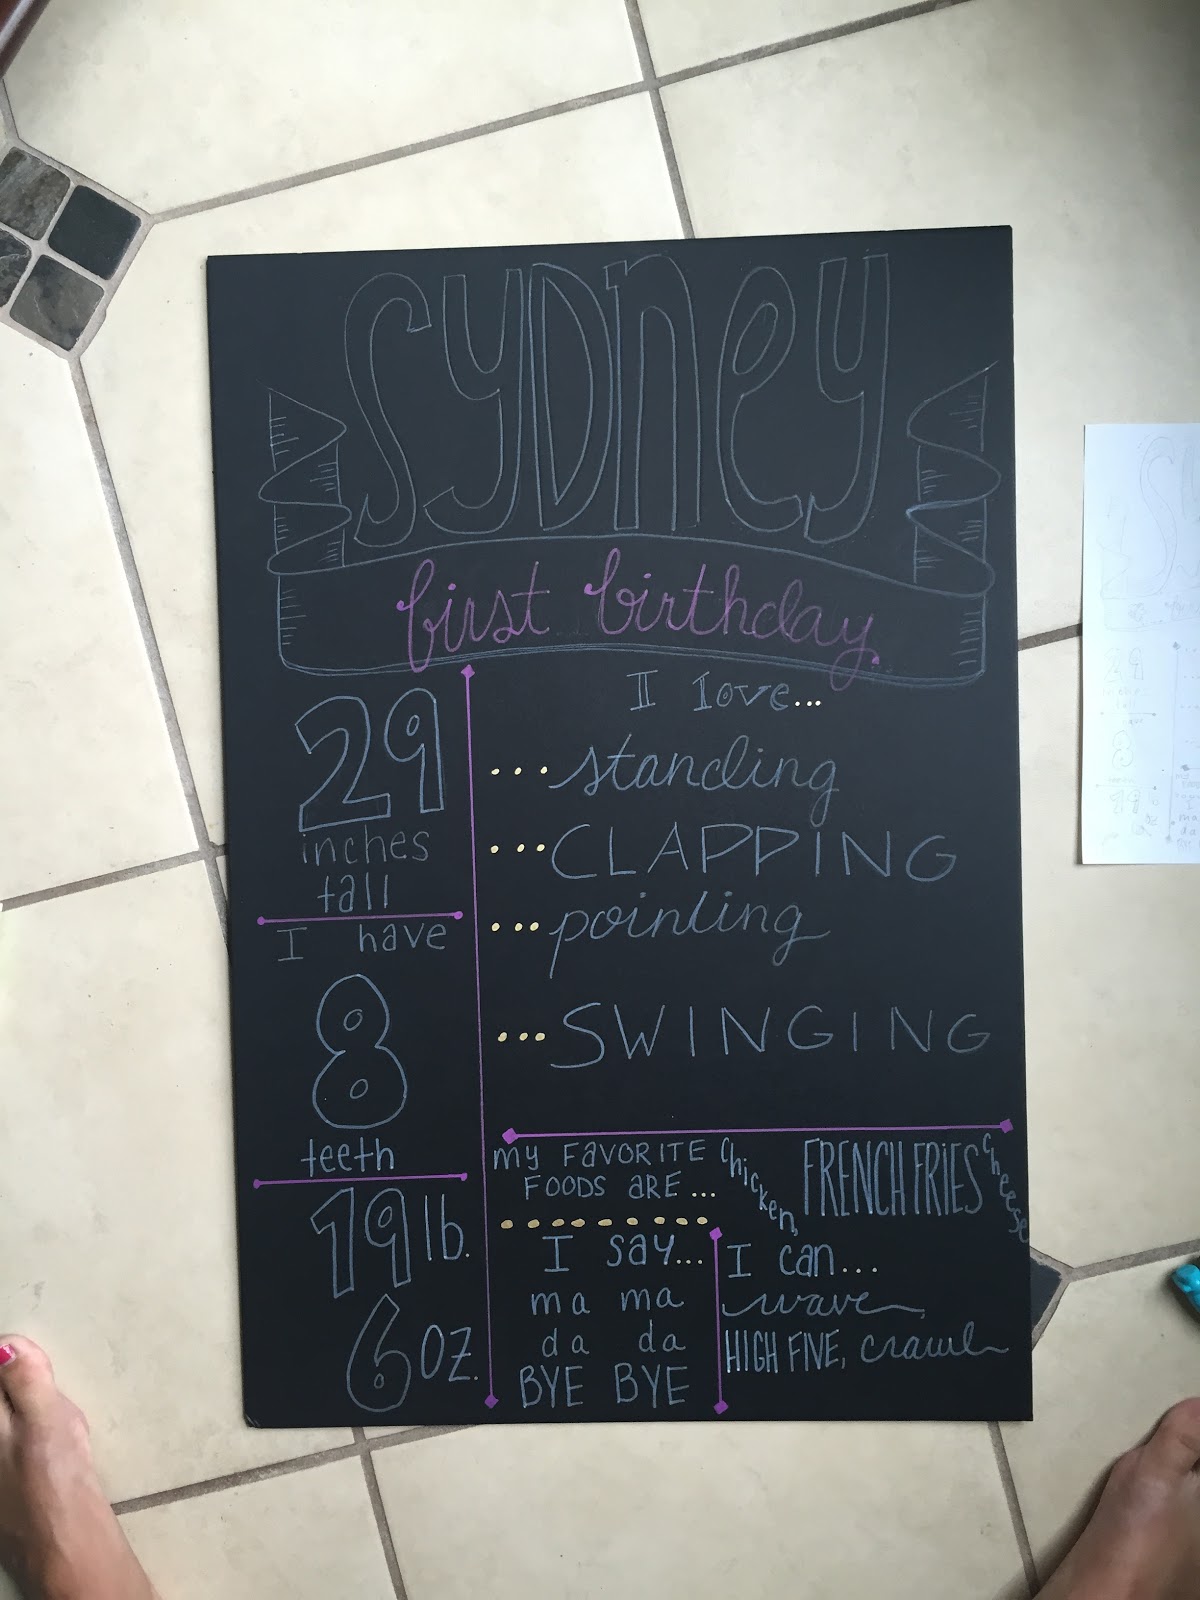 SYDNEY
first birthday
29
inches
tall
I have
8
teeth
19 lb.
6 oz.
I love...
...standing
...CLAPPING
...pointing
...SWINGING
my FAVORITE
FOODS ARE...
chicken,
FRENCH FRIES
cheese
I say...
ma ma
da da
BYE BYE
I can...
wave,
HIGH FIVE, crawl
29
inches
tall
8
teeth
19